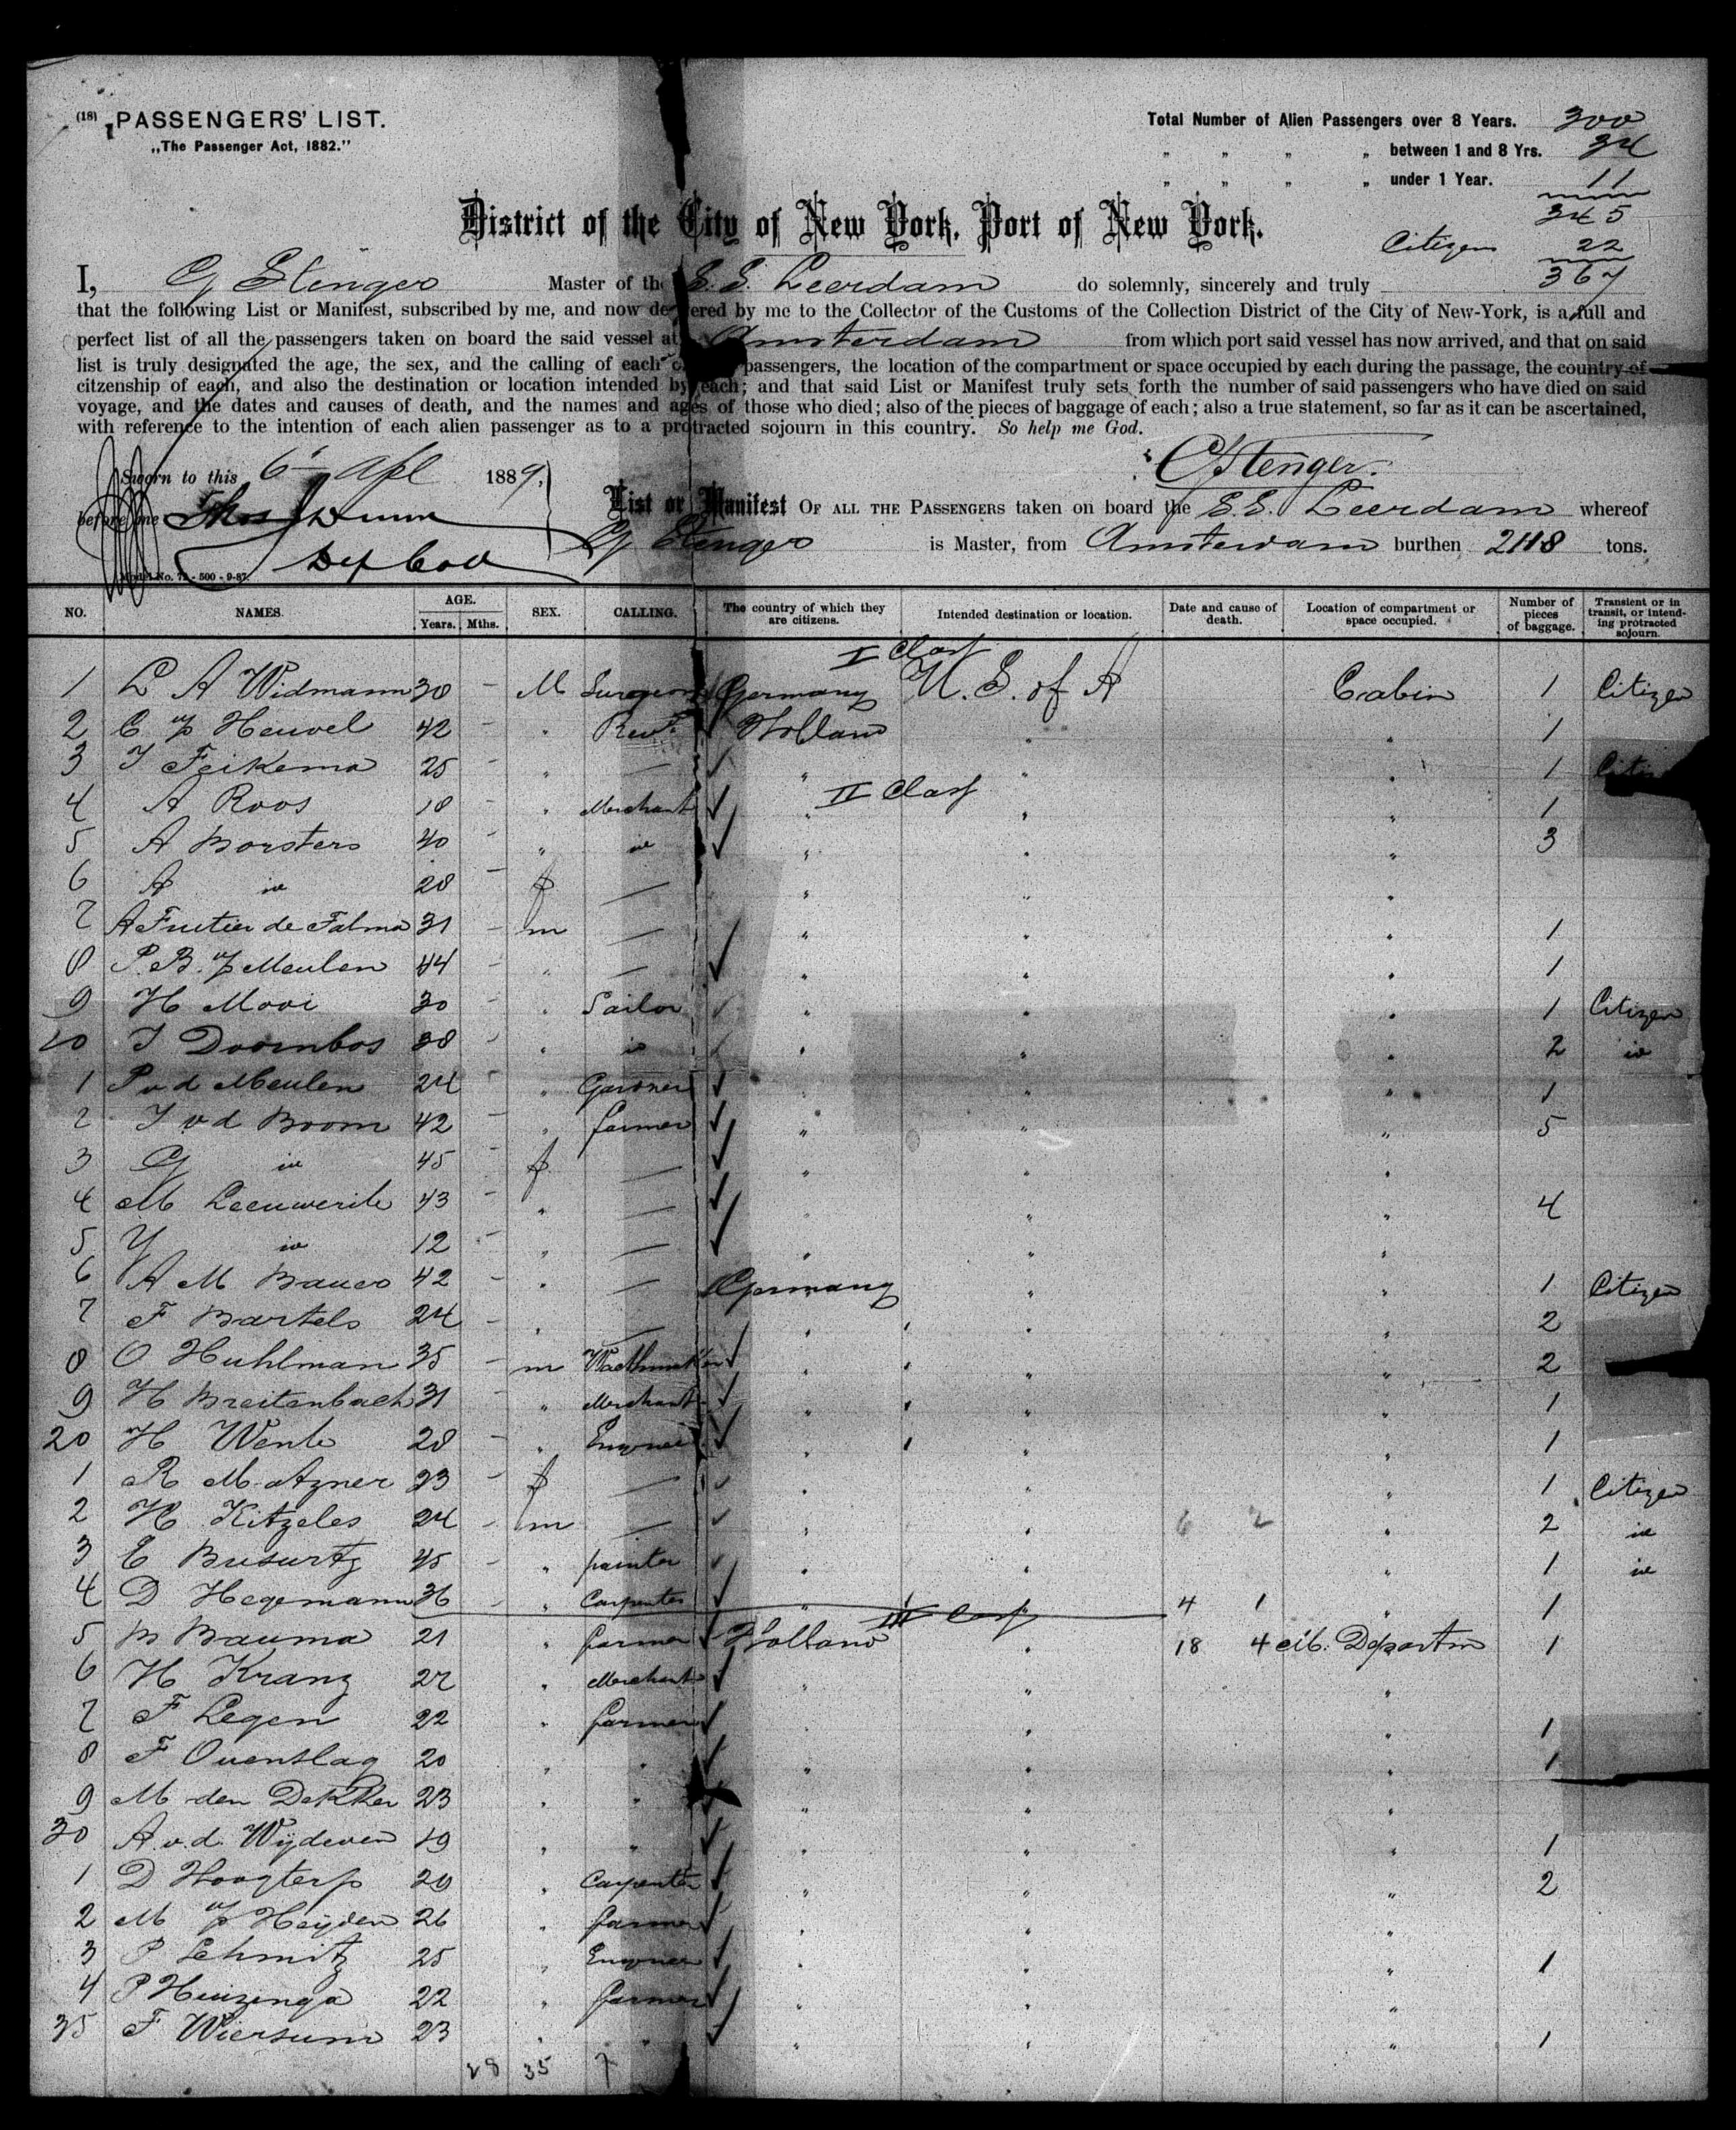 (18) PASSENGERS' LIST.
„The Passenger Act, 1882."
Total Number of Alien Passengers over 8 Years. 300
„ „ „ „ between 1 and 8 Yrs. 34
„ „ „ „ under 1 Year. 11
345
Citizen 22
367
District of the City of New York, Port of New York.
I, G Stenger Master of the S.S. Leerdam do solemnly, sincerely and truly
that the following List or Manifest, subscribed by me, and now delivered by me to the Collector of the Customs of the Collection District of the City of New-York, is a full and
perfect list of all the passengers taken on board the said vessel at Amsterdam from which port said vessel has now arrived, and that on said
list is truly designated the age, the sex, and the calling of each of passengers, the location of the compartment or space occupied by each during the passage, the country of
citzenship of each, and also the destination or location intended by each; and that said List or Manifest truly sets forth the number of said passengers who have died on said
voyage, and the dates and causes of death, and the names and ages of those who died; also of the pieces of baggage of each; also a true statement, so far as it can be ascertained,
with reference to the intention of each alien passenger as to a protracted sojourn in this country. So help me God.
Sworn to this 6 Apl 1889,
GStenger.
before me Thos J Dunn
Dep Coll
List or Manifest OF ALL THE PASSENGERS taken on board the S.S. Leerdam whereof
G Stenger is Master, from Amsterdam burthen 2118 tons.
Model No. 72 - 500 - 9-87.
NO. NAMES. AGE. Years. Mths. SEX. CALLING. The country of which they are citizens. Intended destination or location. Date and cause of death. Location of compartment or space occupied. Number of pieces of baggage. Transient or in transit, or intending protracted sojourn.
I Class
1 L A Widmann 38 - M Surgeon Germany U. S. of A Cabin 1 Citizen
2 C v/d Heuvel 42 - " Revd. Holland " " 1
3 T Feikema 25 - " — " " " 1 Citizen
II Class
4 A Roos 18 - " Merchant " " " 1
5 A Borsters 40 - " id " " " 3
6 A id 28 - f — " " "
7 A Frutier de Talma 31 - m — " " " 1
8 P. B. v/d Meulen 44 - " — " " " 1
9 H Mooi 30 - " Sailor " " " 1 Citizen
10 J Doornbos 38 - " id " " " 2 id
1 P v d Meulen 24 - " Gardner " " " 1
2 J v d Boom 42 - " farmer " " " 5
3 G id 45 - f — " " "
4 M Leeuwerik 43 - " — " " " 4
5 Y id 12 - " — " " "
6 A M Bauer 42 - " — Germany " " 1 Citizen
7 F Bartels 24 - " — " " " 2
8 O Huhlman 35 - m Wachmaker " " " 2
9 H Breitenbach 31 - " Merchant " " " 1
20 H Wenk 28 - " Engineer " " " 1
1 R M Azner 23 - f — " " " 1 Citizen
2 H Kitzeles 24 - m — " " 6 2 " 2 id
3 E Busurtz 45 - " painter " " " 1 id
4 D Hegemann 36 " Carpenter " " 4 1 " 1
III Class
5 M Bauma 21 " farmer Holland " 18 4 Departm 1
6 H Kranz 22 " Merchant " " "
7 F Legen 22 " farmer " " " 1
8 F Ouenslag 20 " " " " " 1
9 M den Dekker 23 " " " " "
30 A v. d. Wijdeven 19 " " " " " 1
1 D Hoogterp 20 " Carpenter " " " 2
2 M v/d Heijden 26 " farmer " " "
3 P Schmitz 25 " Engineer " " " 1
4 P Huizenga 22 " farmer " " "
35 F Wiersum 23 " " " " " 1
28 35 7